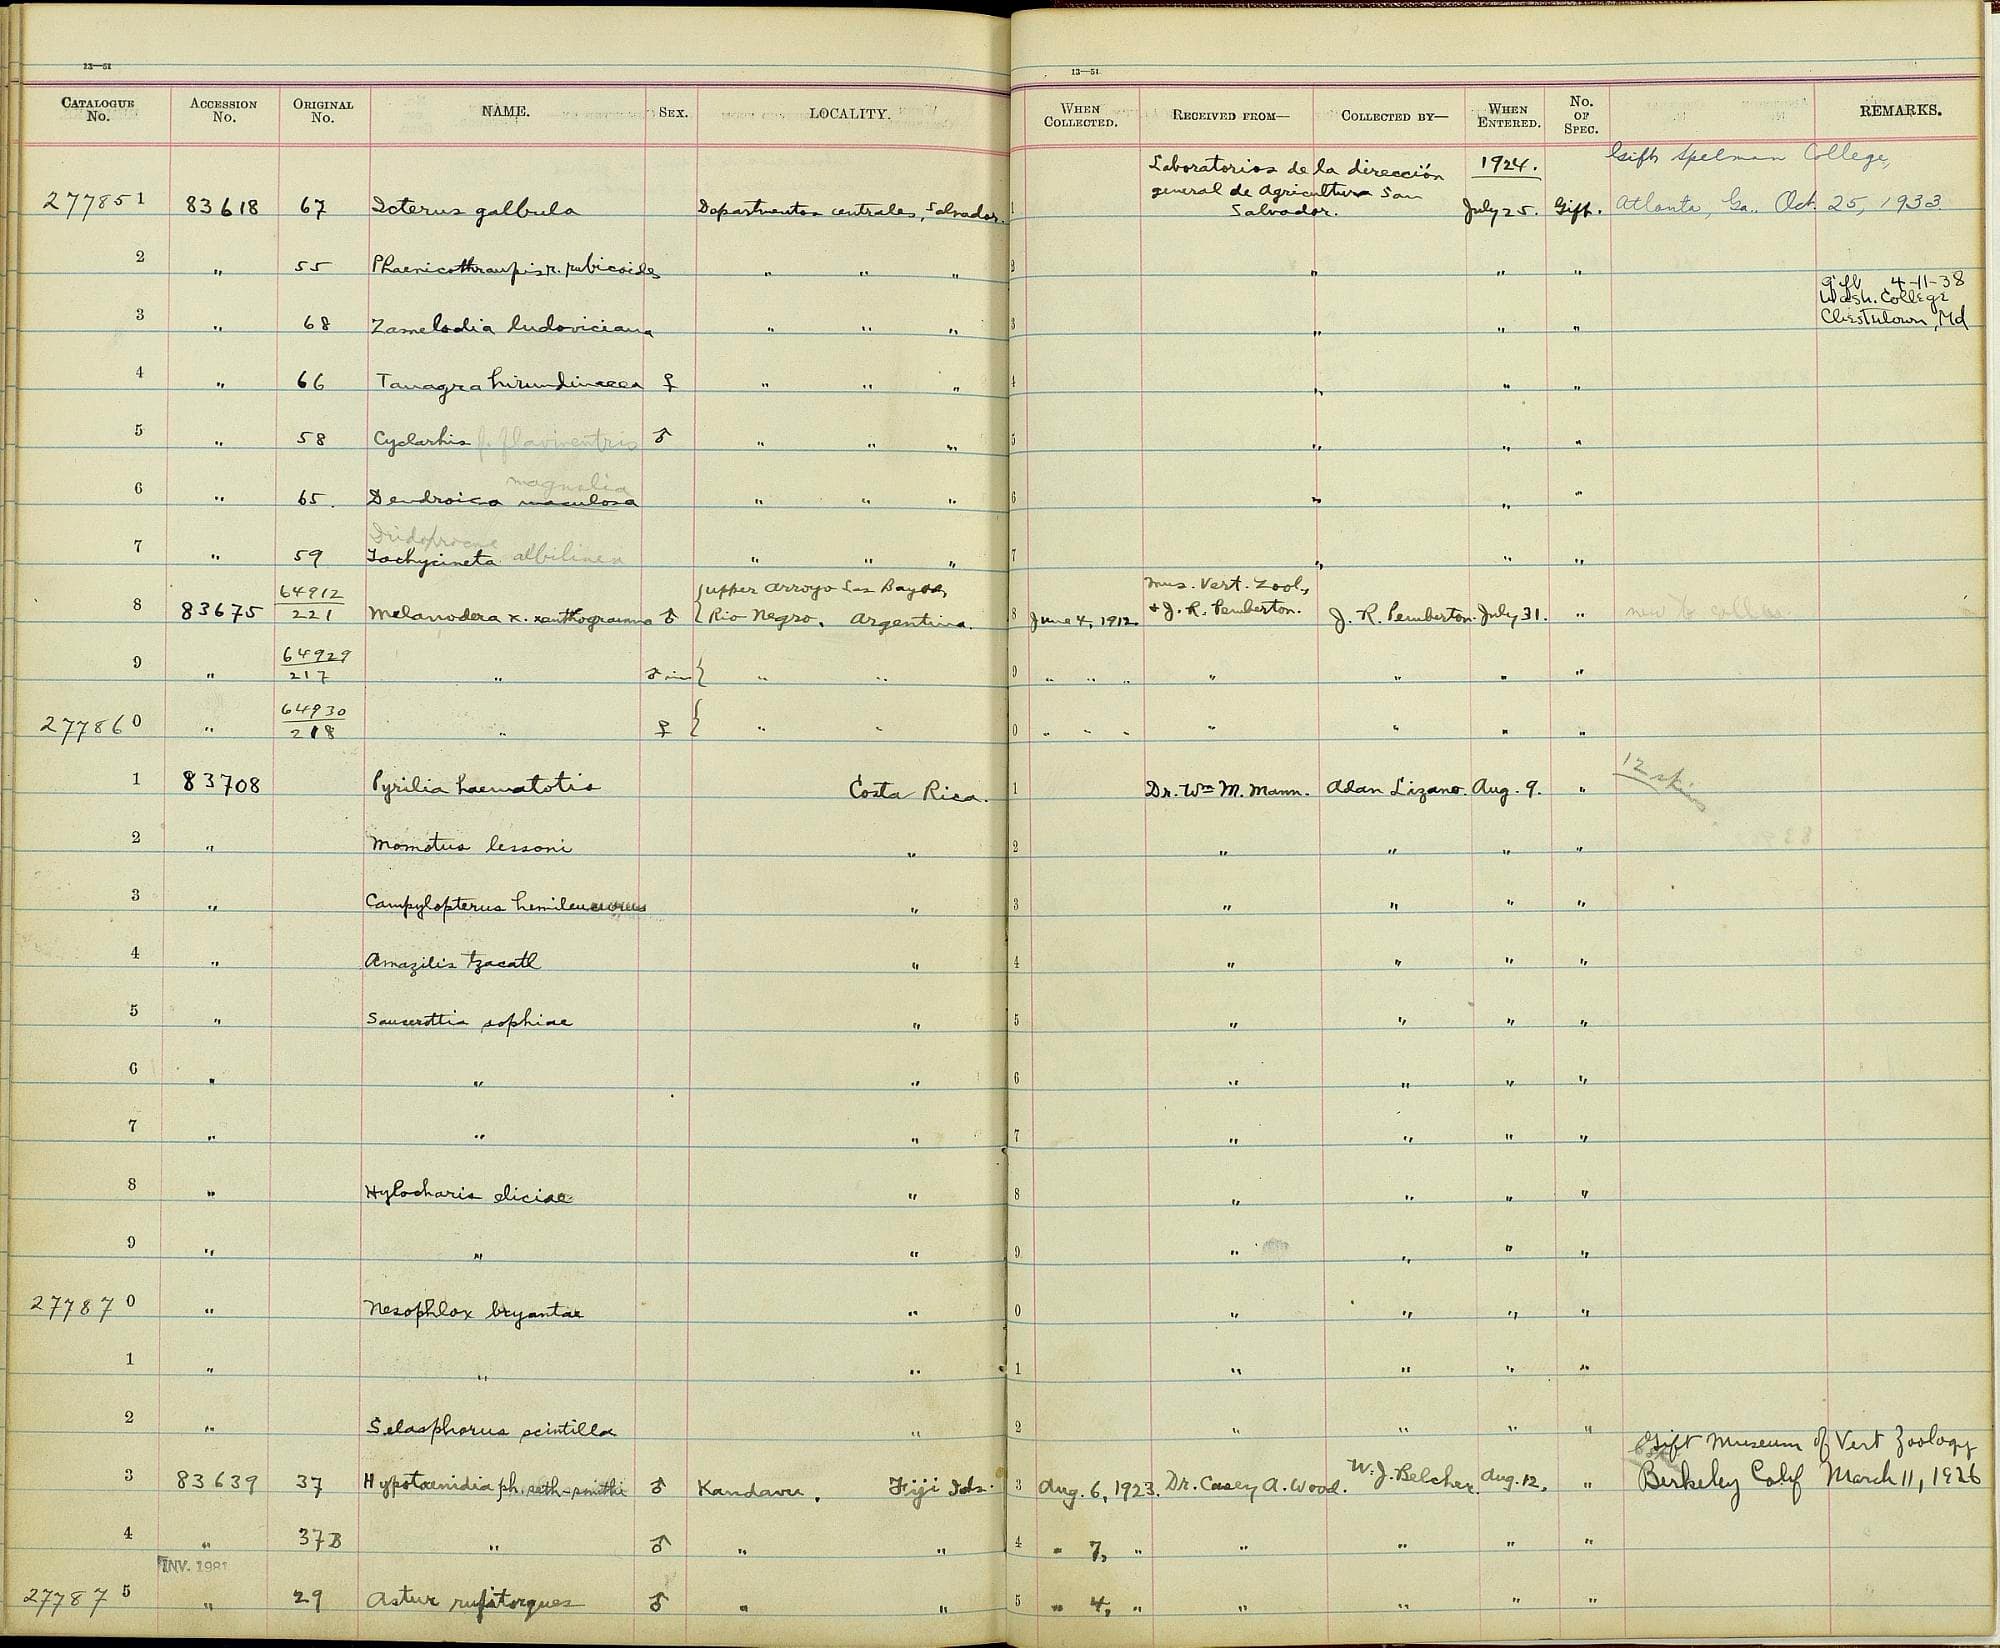 13—51
13—51
CATALOGUE No. ACCESSION No. ORIGINAL No. NAME. SEX. LOCALITY. WHEN COLLECTED. RECEIVED FROM— COLLECTED BY— WHEN ENTERED. No. OF SPEC. REMARKS.
Laboratorios de la dirección 1924. Gift Spelman College,
general de Agricultura San
277851 83618 67 Icterus galbula Departmentos centrales, Salvador. 1 Salvador. July 25. Gift. Atlanta, Ga., Oct. 25, 1933
2 " 55 Phaenicothraupis r. rubicoides " " " 2 " " "
gift 4-11-38
Wash. College
3 " 68 Zamelodia ludoviciana " " " 3 " " " Chestertown, Md
4 " 66 Tanagra hirundinacea ♀ " " " 4 " " "
5 " 58 Cyclarhis f. flaviventris ♂ " " " 5 " " "
magnolia
6 " 65. Dendroica maculosa " " " 6 " " "
Iridoprocne
7 " 59 Tachycineta albilinea " " " 7 " " "
64912 upper Arroyo Las Bayas, Mus. Vert. Zool.,
8 83675 221 Melanodera x. xanthogramma ♂ Rio Negro, Argentina. 8 June 4, 1912 & J. R. Pemberton. J. R. Pemberton. July 31. " new to collec.
64929
9 " 217 " ♂ im " " 9 " " " " " " "
64930
277860 " 218 " ♀ " " 0 " " " " " " "
1 83708 Pyrilia haematotis Costa Rica. 1 Dr. Wm M. Mann. Adan Lizano. Aug. 9. " 12 skins
2 " Momotus lessoni " 2 " " " "
3 " Campylopterus hemileucurus " 3 " " " "
4 " Amazilis tzacatl " 4 " " " "
5 " Saucerottia sophiae " 5 " " " "
6 " " " 6 " " " "
7 " " " 7 " " " "
8 " Hylocharis eliciae " 8 " " " "
9 " " " 9 " " " "
277870 " Nesophlox bryantae " 0 " " " "
1 " " " 1 " " " "
2 " Selasphorus scintilla " 2 " " " "
Gift Museum of Vert Zoology
3 83639 37 Hypotaenidia ph. seth-smithi ♂ Kandavu, Fiji Ids. 3 Aug. 6, 1923. Dr. Casey A. Wood. W. J. Belcher. Aug. 12. " Berkeley Calif March 11, 1926
4 " 37B " ♂ " " 4 " 7, " " " " "
INV. 1981
277875 " 29 Astur rufitorques ♂ " " 5 " 4, " " " " "